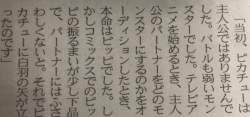 「当初、ピカチュウは
主人公ではありませんで
した。バトルも弱いモン
スターでした。テレビア
ニメを始めるとき、主人
公のパートナーをどのモ
ンスターにするのかをオ
ーディションしたとき、
本命はピッピでした。し
かしコミックスでのピッ
ピの振るまいが少し下品
で、パートナーにはふさ
わしくないと、それでピ
カチュウに白羽の矢が立
ったのです」